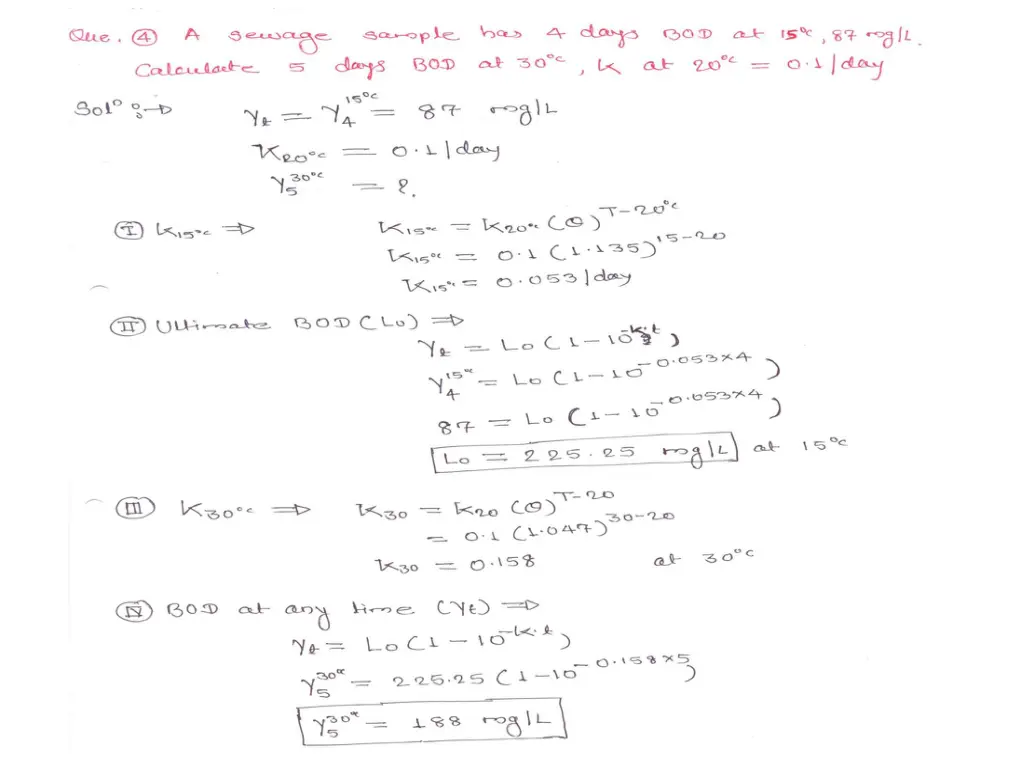 Que. ④ A sewage sample has 4 days BOD at 15°C, 87 mg/L.
Calculate 5 days BOD at 30°C, K at 20°C = 0.1/day
Sol^n :→ Y_t = Y_4^15°C = 87 mg/L
K_20°C = 0.1/day
Y_5^30°C = ?
Ⓘ K_15°C ⇒ K_15°C = K_20°C (θ)^T-20°C
K_15°C = 0.1 (1.135)^15-20
K_15°C = 0.053/day
Ⅱ Ultimate BOD (Lo) ⇒
Y_t = Lo (1-10^-k.t)
Y_4^15°C = Lo (1-10^-0.053×4)
87 = Lo (1-10^-0.053×4)
Lo = 225.25 mg/L at 15°C
Ⅲ K_30°C ⇒ K_30 = K_20 (θ)^T-20
= 0.1 (1.047)^30-20
K_30 = 0.158 at 30°C
Ⅳ BOD at any time (Yt) ⇒
Y_t = Lo (1-10^-k.t)
Y_5^30°C = 225.25 (1-10^-0.158×5)
Y_5^30°C = 188 mg/L